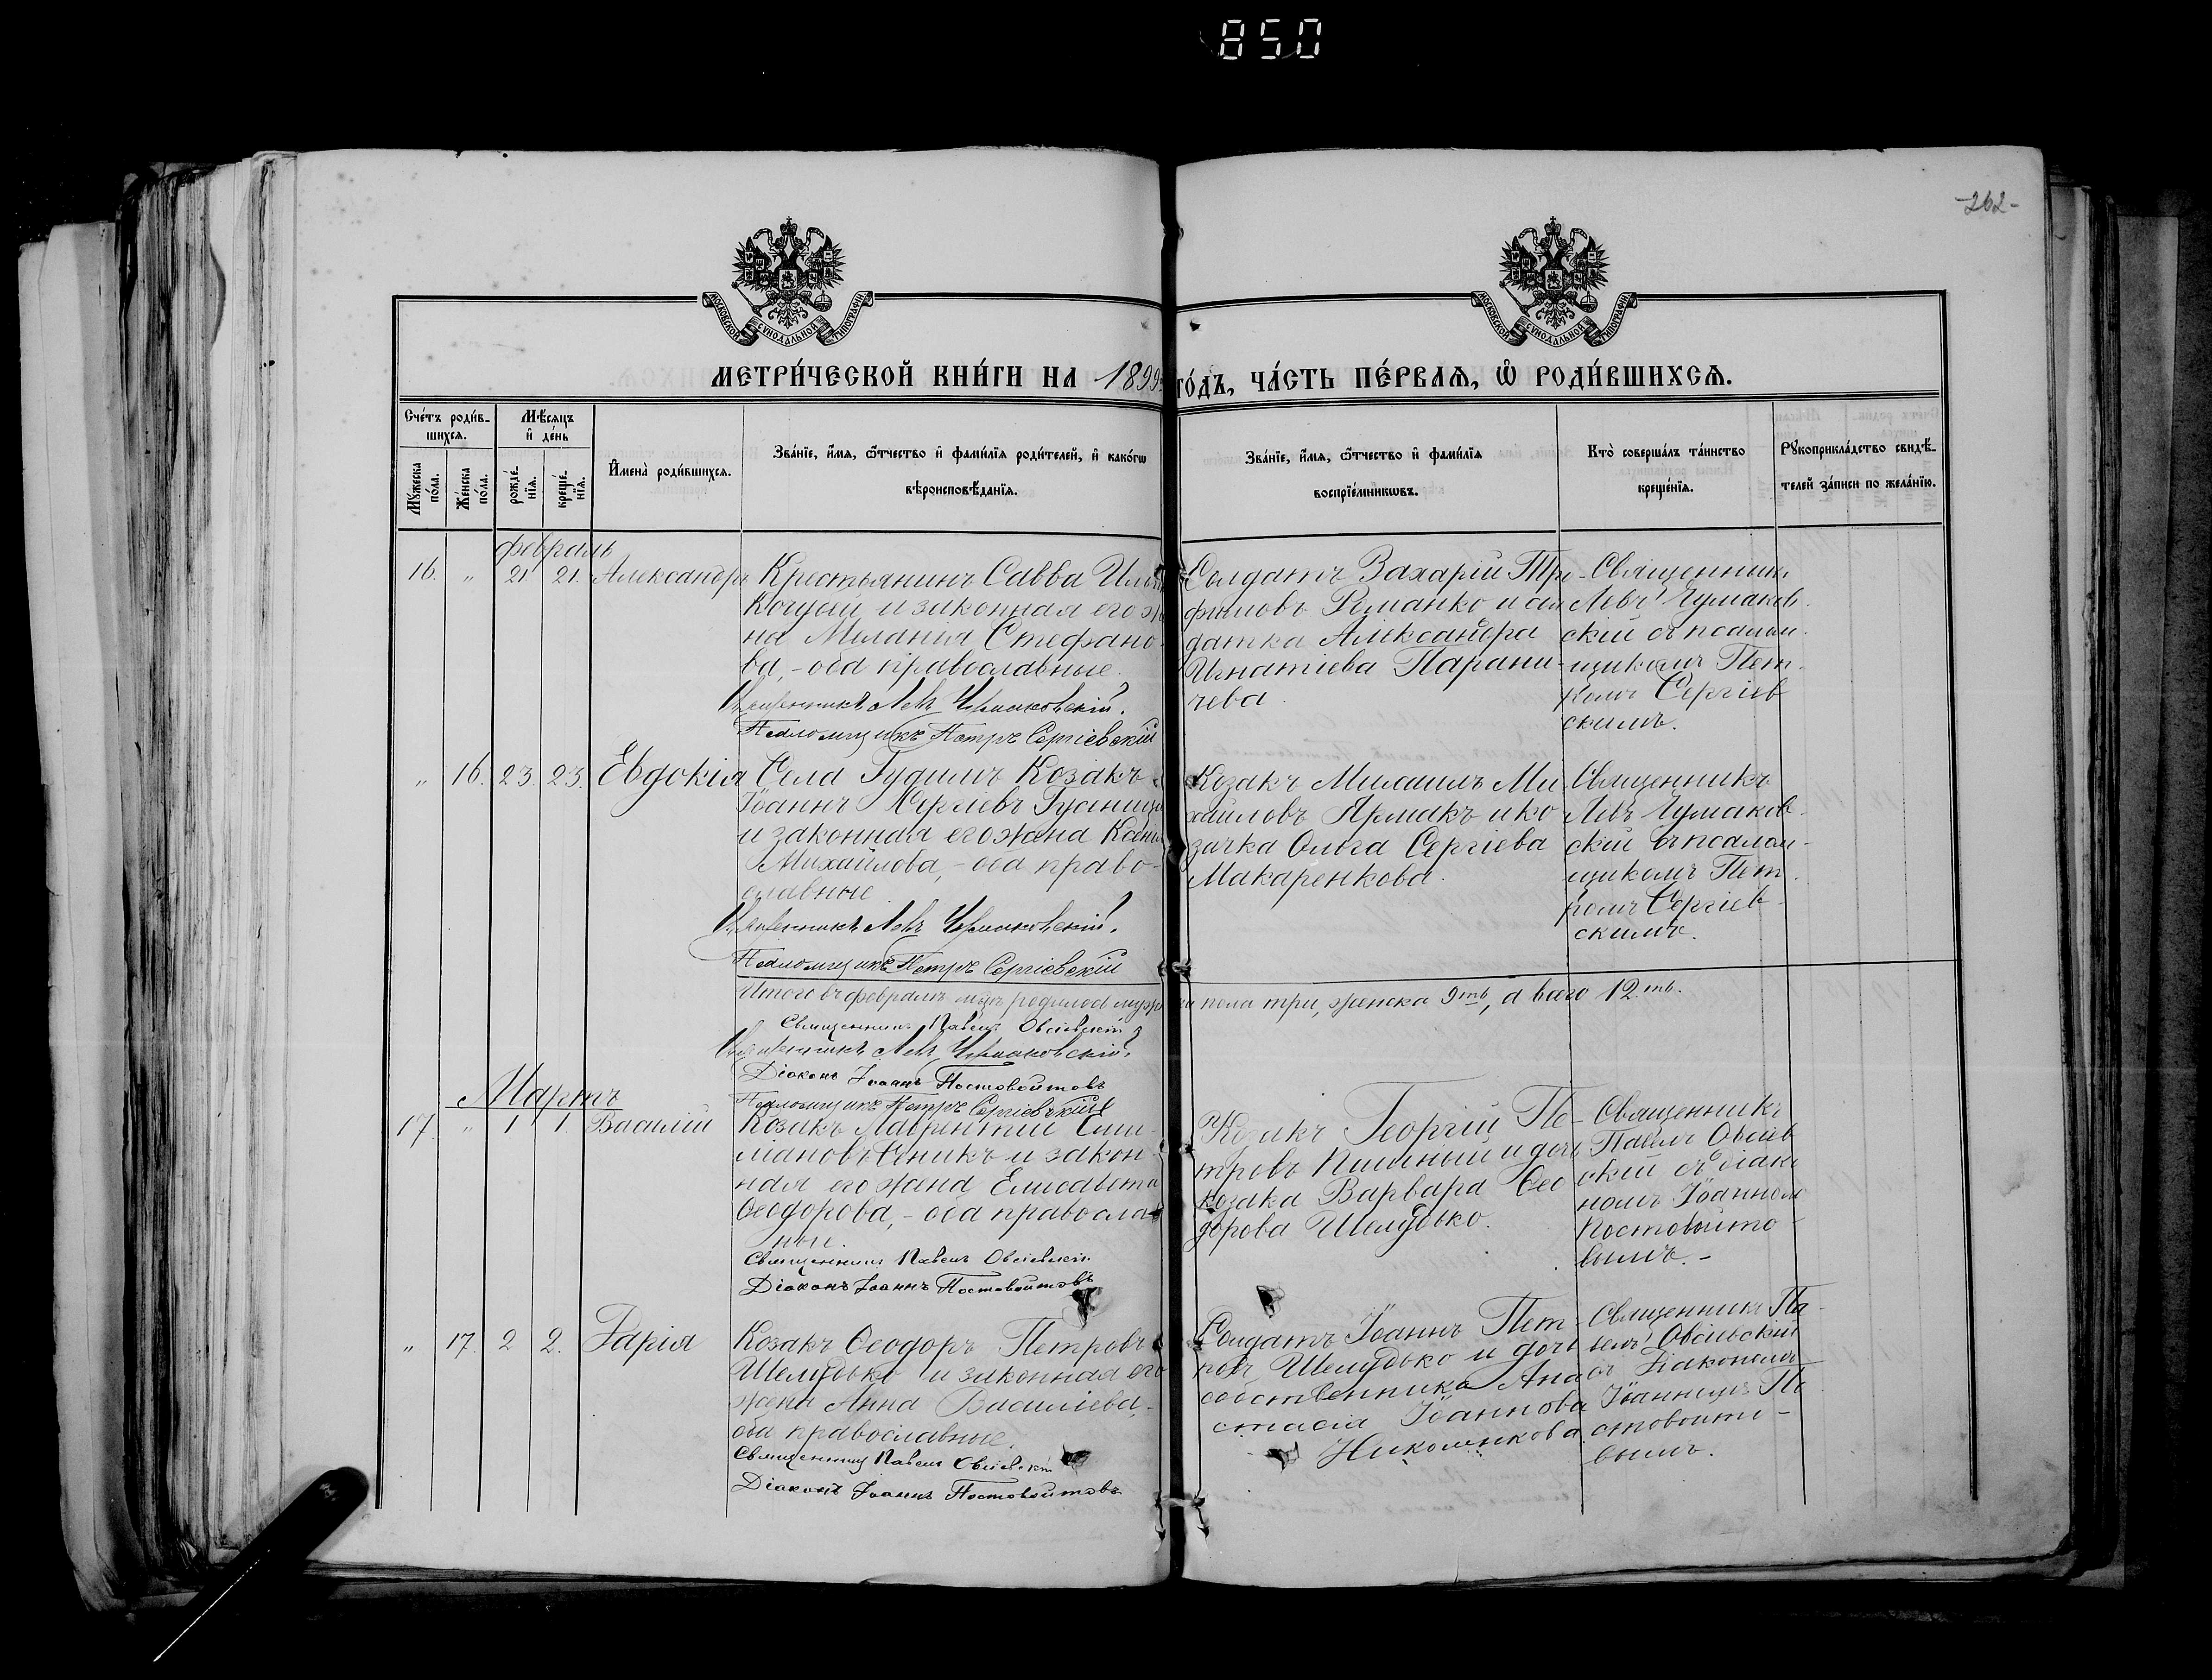 850
-262-
МОСКОВСКОЙ СѴНОДАЛЬНОЙ ТИПОГРАФІИ
МОСКОВСКОЙ СѴНОДАЛЬНОЙ ТИПОГРАФІИ
МЕТРИ́ЧЕСКОЙ КНИ́ГИ НА 1899 ГО́ДЪ, ЧА́СТЬ ПЕ́РВАѦ, Ѡ РОДИ́ВШИХСѦ.
Сче́тъ роди́в-
шихся.
Мꙋжеска по́ла.
Же́нска по́ла.
Мѣ́сяцъ
и҆ де́нь
рожде́-
нїя.
креще́-
нїя.
И҆мена̀ роди́вшихся.
Зва́нїе, и҆́мя, ѻ҆́тчество и҆ фами́лїя роди́телей, и҆ како́гѡ
вѣроисповѣ́данїя.
Зва́нїе, и҆́мя, ѻ҆́тчество и҆ фами́лїя
воспрїе́мникѡвъ.
Кто̀ соверша́лъ та́инство
креще́нїя.
Рꙋкоприкла́дство свидѣ́-
телей за́писи по жела́нїю.
Февраль
16. „ 21 21. Александръ
Крестьянинъ Савва
и законная его же
на Меланія Стефано-
ва, - оба православные.
Священникъ Левъ Чумаковскій.
Псаломщикъ Петръ Сергіевскій
Солдатъ Захарій Тро-
фимовъ Романко и сол
датка Александра
Игнатіева Парани-
чева.
Священникъ
Левъ Чумаков-
скій съ псалом-
щикомъ Пет-
ромъ Сергіев
скимъ.
„ 16. 23. 23. Евдокія
Села Гудимъ Козакъ
Іоаннъ Сергіевъ
и законная его жена
Михайлова, - оба право-
славные.
Священникъ Левъ Чумаковскій.
Псаломщикъ Петръ Сергіевскій
Козакъ Михаилъ Ми
хаиловъ Ярмакъ и ко
зачка Ольга Сергіева
Макаренкова.
Священникъ
Левъ Чумаков-
скій съ псалом-
щикомъ Пет-
ромъ Сергіев-
скимъ.
Итого въ февралѣ мцѣ родилось муж пола три, женска 9ть, а всего 12.ть.
Священникъ Павелъ Овсіевскій
Священникъ Левъ Чумаковскій.
Діаконъ Іоаннъ Постовойтовъ
Псаломщикъ Петръ Сергіевскій
Мартъ
17. „ 1 1. Василій
Козакъ Лаврентій
и закон-
ная его жена Елисавета
Ѳеодорова, - оба православ
ные.
Священникъ Павелъ Овсіевскій.
Діаконъ Іоаннъ Постовойтовъ
Козакъ Георгій Пе-
тровъ и дочь
козака Варвара Ѳео
дорова Шелудько.
Священникъ
Павелъ Овсіев
скій съ діако
номъ Іоанномъ
Постовойто-
вымъ. -
„ 17. 2 2. Дарія
Козакъ Ѳеодоръ Петровъ
Шелудько и законная его
жена Анна Василіева, -
оба православные.
Священникъ Павелъ Овсіевскій
Діаконъ Іоаннъ Постовойтовъ
Солдатъ Іоаннъ Пет-
ровъ Шелудько и дочь
собственника Ана
стасія Іоаннова
Николенкова.
Священникъ Па-
велъ Овсіевскій
съ Діакономъ
Іоанномъ По
стовойто-
вымъ.